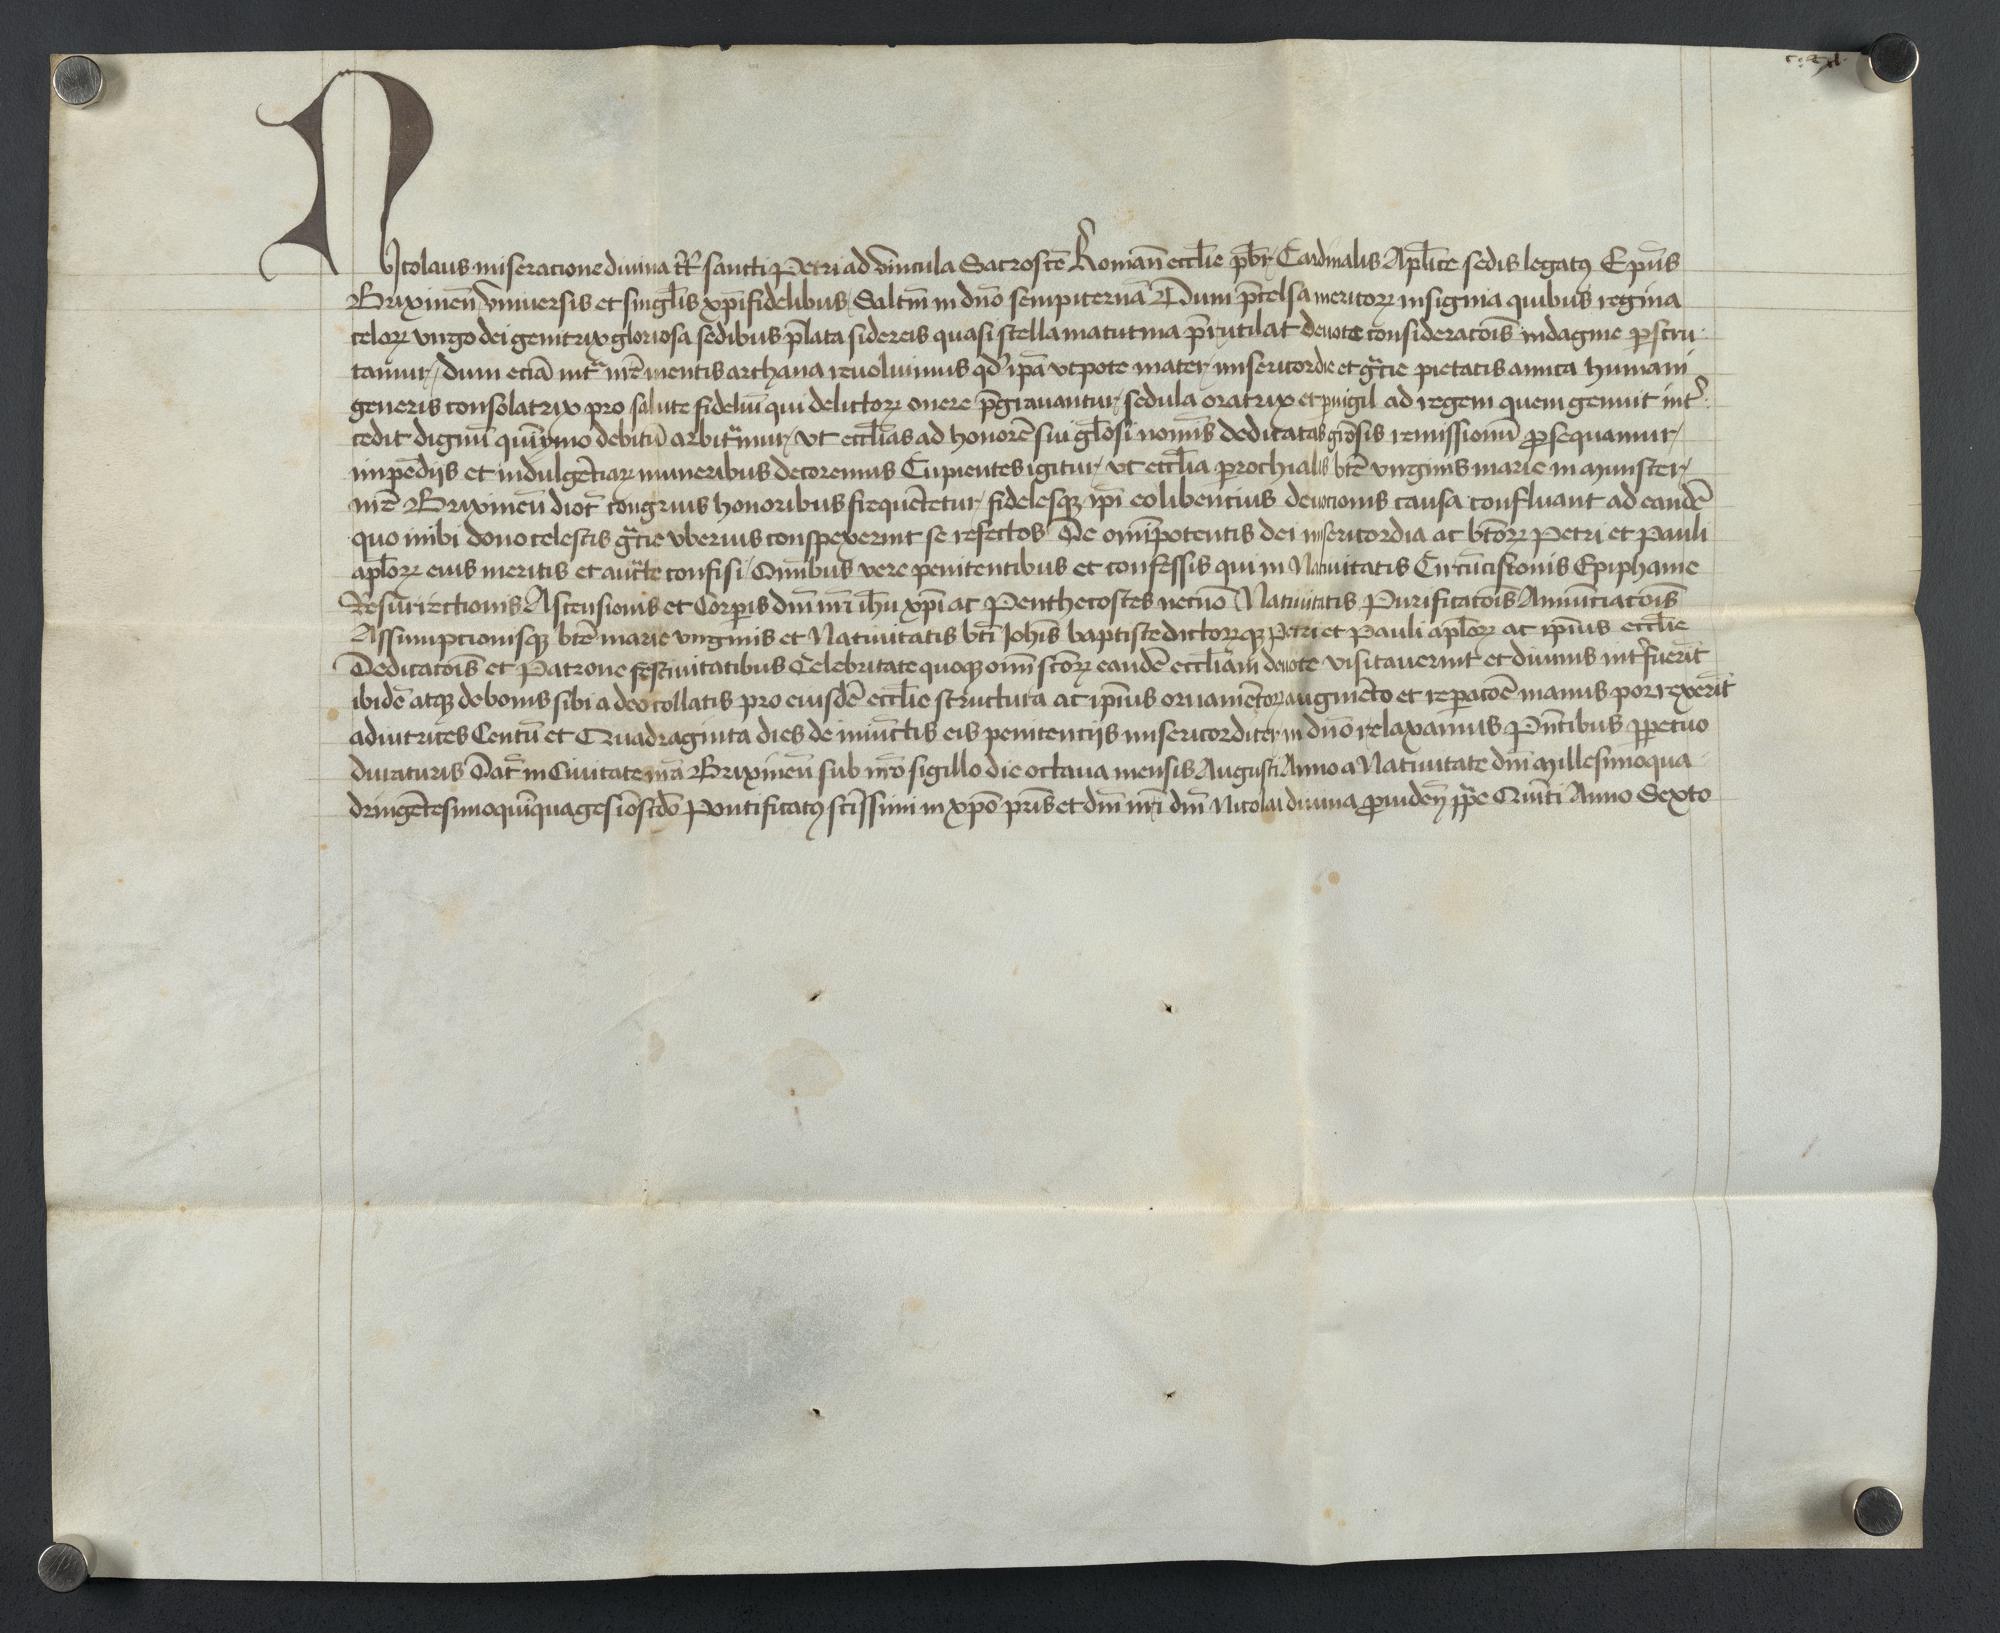 NIcolaus miseracione diuina tt̄ sancti Petri ad vincula Sacroscē Romañ eccl̄ie pr̄br Cardinalis Apl̄ice sedis legatꝰ Ep̄us
Brixineñ Vniuersis et singl̄is xp̄ifidelibus Saltm̄ in dn̄o sempiternā Dum p̄celsa meritoꝝ insignia quibus regina
celoꝝ virgo dei genitrix gloriosa sedibus p̄lata sidereis quasi stella matutina p̄rutilat deuote consideraco̅is indagine ꝑscru
tamur / dum eciā intͣ nr̄e mentis archana reuoluimus qd̓ ip̄a vtpote mater / misericordie et gr̄cie pietatis amica humani
generis consolatrix pro salute fideliū qui delictoꝝ onere p̄grauantur / sedula oratrix et ꝑuigil ad regem quem genuit int̓
cedit dignū quīymo debitū arbitͣmur / vt eccl̄ias ad honorē sui gl̄osi nomīs dedicatas gr̄osis remissionū ꝓsequamur /
impēdijs et indulgēciaꝝ muneribus decoremus Cupientes igitur / vt eccl̄ia ꝑrochialis bt̄e virginis marie in Munster /
nr̄e Brixineñ dioc̄ congruis honoribus frequētetur / fidelesqꝫ ip̄i eo libencius deuocionis causa confluant ad eandē
quo inibi dono celestis gr̄cie vberius conspexerint se refectos De om̄ipotentis dei misericordia ac bt̄oꝝ Petri et Pauli
apl̄oꝝ eius meritis et auct̄e confisi Omībus vere penitentibus et confessis qui in Natiuitatis Circūcisionis Epiphanie
Resurrectionis Ascensionis et Corꝑis dn̄i nr̄i ih̄u xp̄i ac Penthecostes necnō Natiuitatis Purificaco̅is Annūciaco̅is
Assumpcionisqꝫ bt̄e marie virginis et Natiuitatis bt̄i Joh̄is baptiste dictoꝝqꝫ Petri et Pauli apl̄oꝝ ac ip̄ius eccl̄ie
Dedicaco̅is et Patrone festiuitatibus Celebritate quoqꝫ om̄i sc̄oꝝ eandē eccl̄iam deuote visitauerint et diuinis int̓fuerīt
ibidē atqꝫ de bonis sibi a deo collatis pro eiusdē eccl̄ie structura ac ip̄ius ornamētoꝝ augmēto et reꝑaco̅e manus porrexerīt
adiutrices Centū et Quadraginta dies de iniūctis eis penitencijs misericorditer in dn̄o relaxamus Pn̄tibus ꝑpetuo
duraturis Datͣ in Ciuitate nr̄a Brixineñ sub nr̄o sigillo die octaua mensis Augusti Anno a Natiuitate dn̄i Millesimoqua
dringētesimoquīquagesiō sc̄do Pontificatꝰ sc̄issimi in xp̄o pr̄is et dn̄i nr̄i dn̄i Nicolai diuina ꝓuideñ pp̄e Quīti Anno Sexto